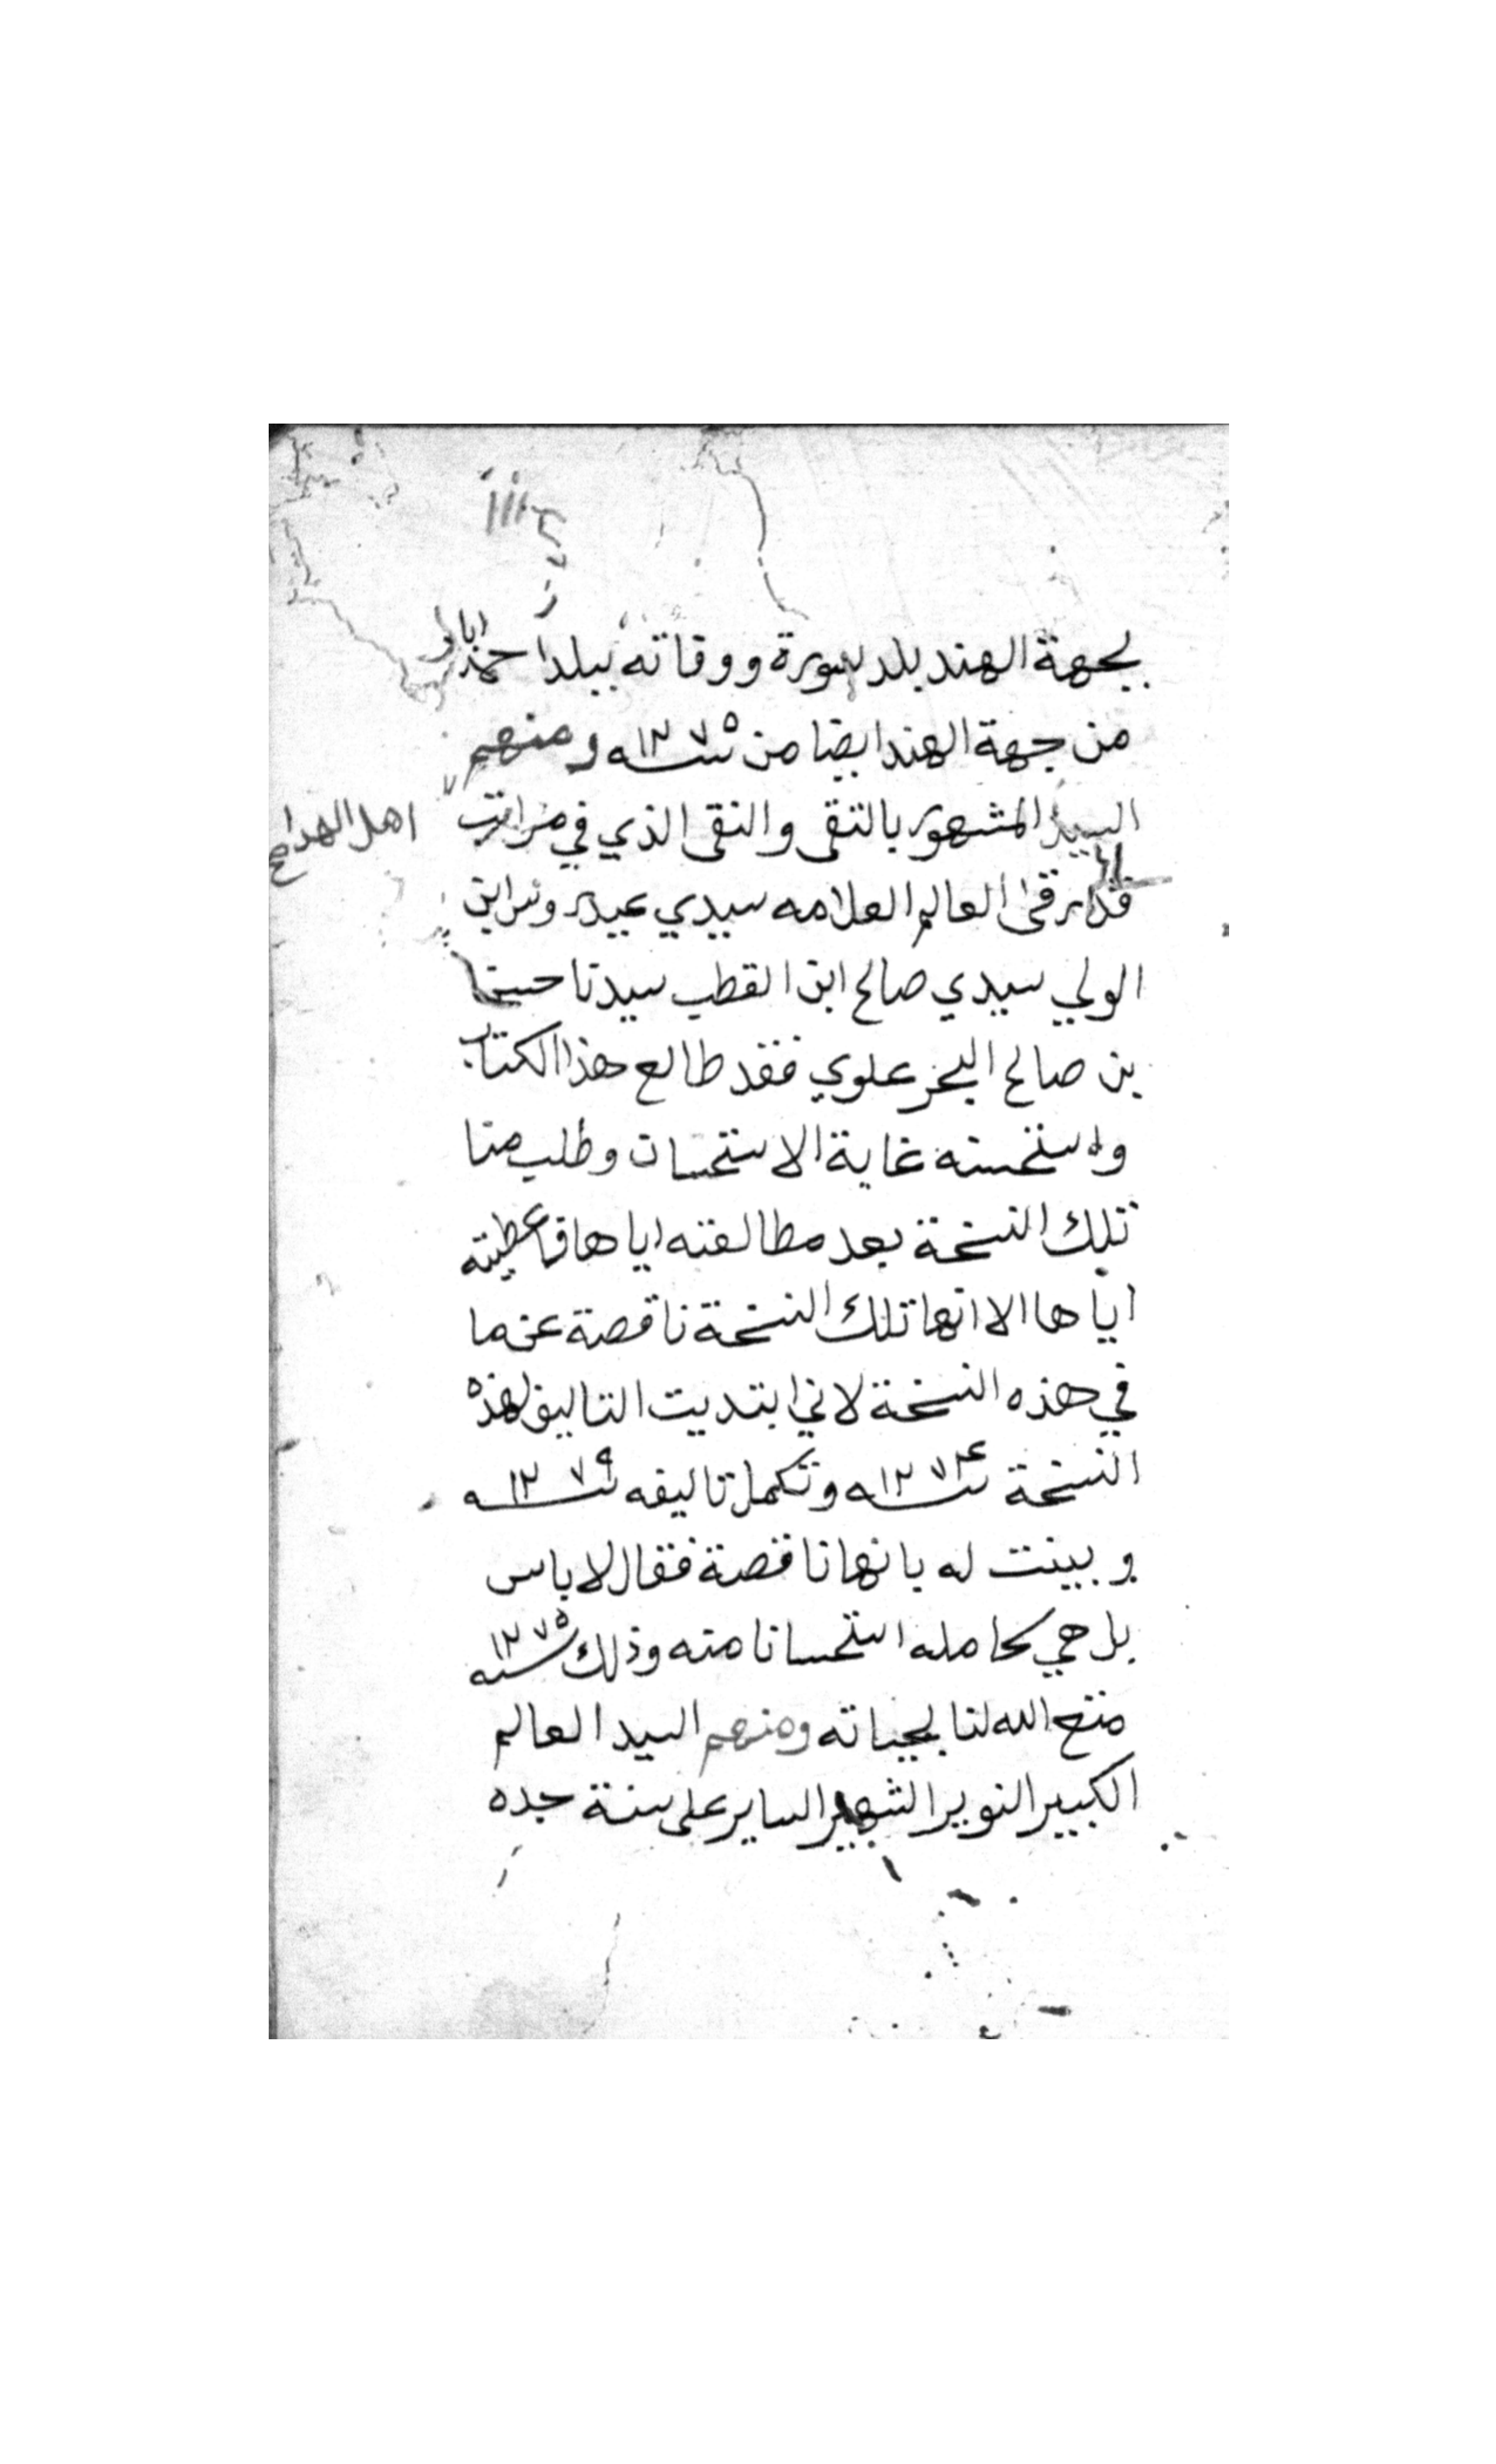 بجهة الهند بلد سورة ووفاته ببلد احمد اباد
من جهة الهند ايضا من سنه ١٢٧٥ ومنهم
السيد المشهور بالتقى والنقى الذي في مراتب
اهل الهدايه
قد ارقى العالم العلامه سيدي عيدروس ابن
الولي سيدي صالح ابن القطب سيدنا حسين
بن صالح البحر علوي فقد طالع هذا الكتاب
واستحسنه غاية الاستحسان وطلب منا
تلك النسخة بعد مطالعته اياها فاعطيته
اياها الا انها تلك النسخة ناقصة عن ما
في هذه النسخة لاني ابتديت التاليف لهذه
النسخة سنه ١٢٧٤ وتكمل تاليفه سنه ١٢٧٩
وبينت له بانها ناقصة فقال لا باس
بل هي كامله استحسانا منه وذلك سنه ١٢٧٥
متع الله لنا بحياته ومنهم السيد العالم
الكبير النوير الشهير الساير على سنة جده